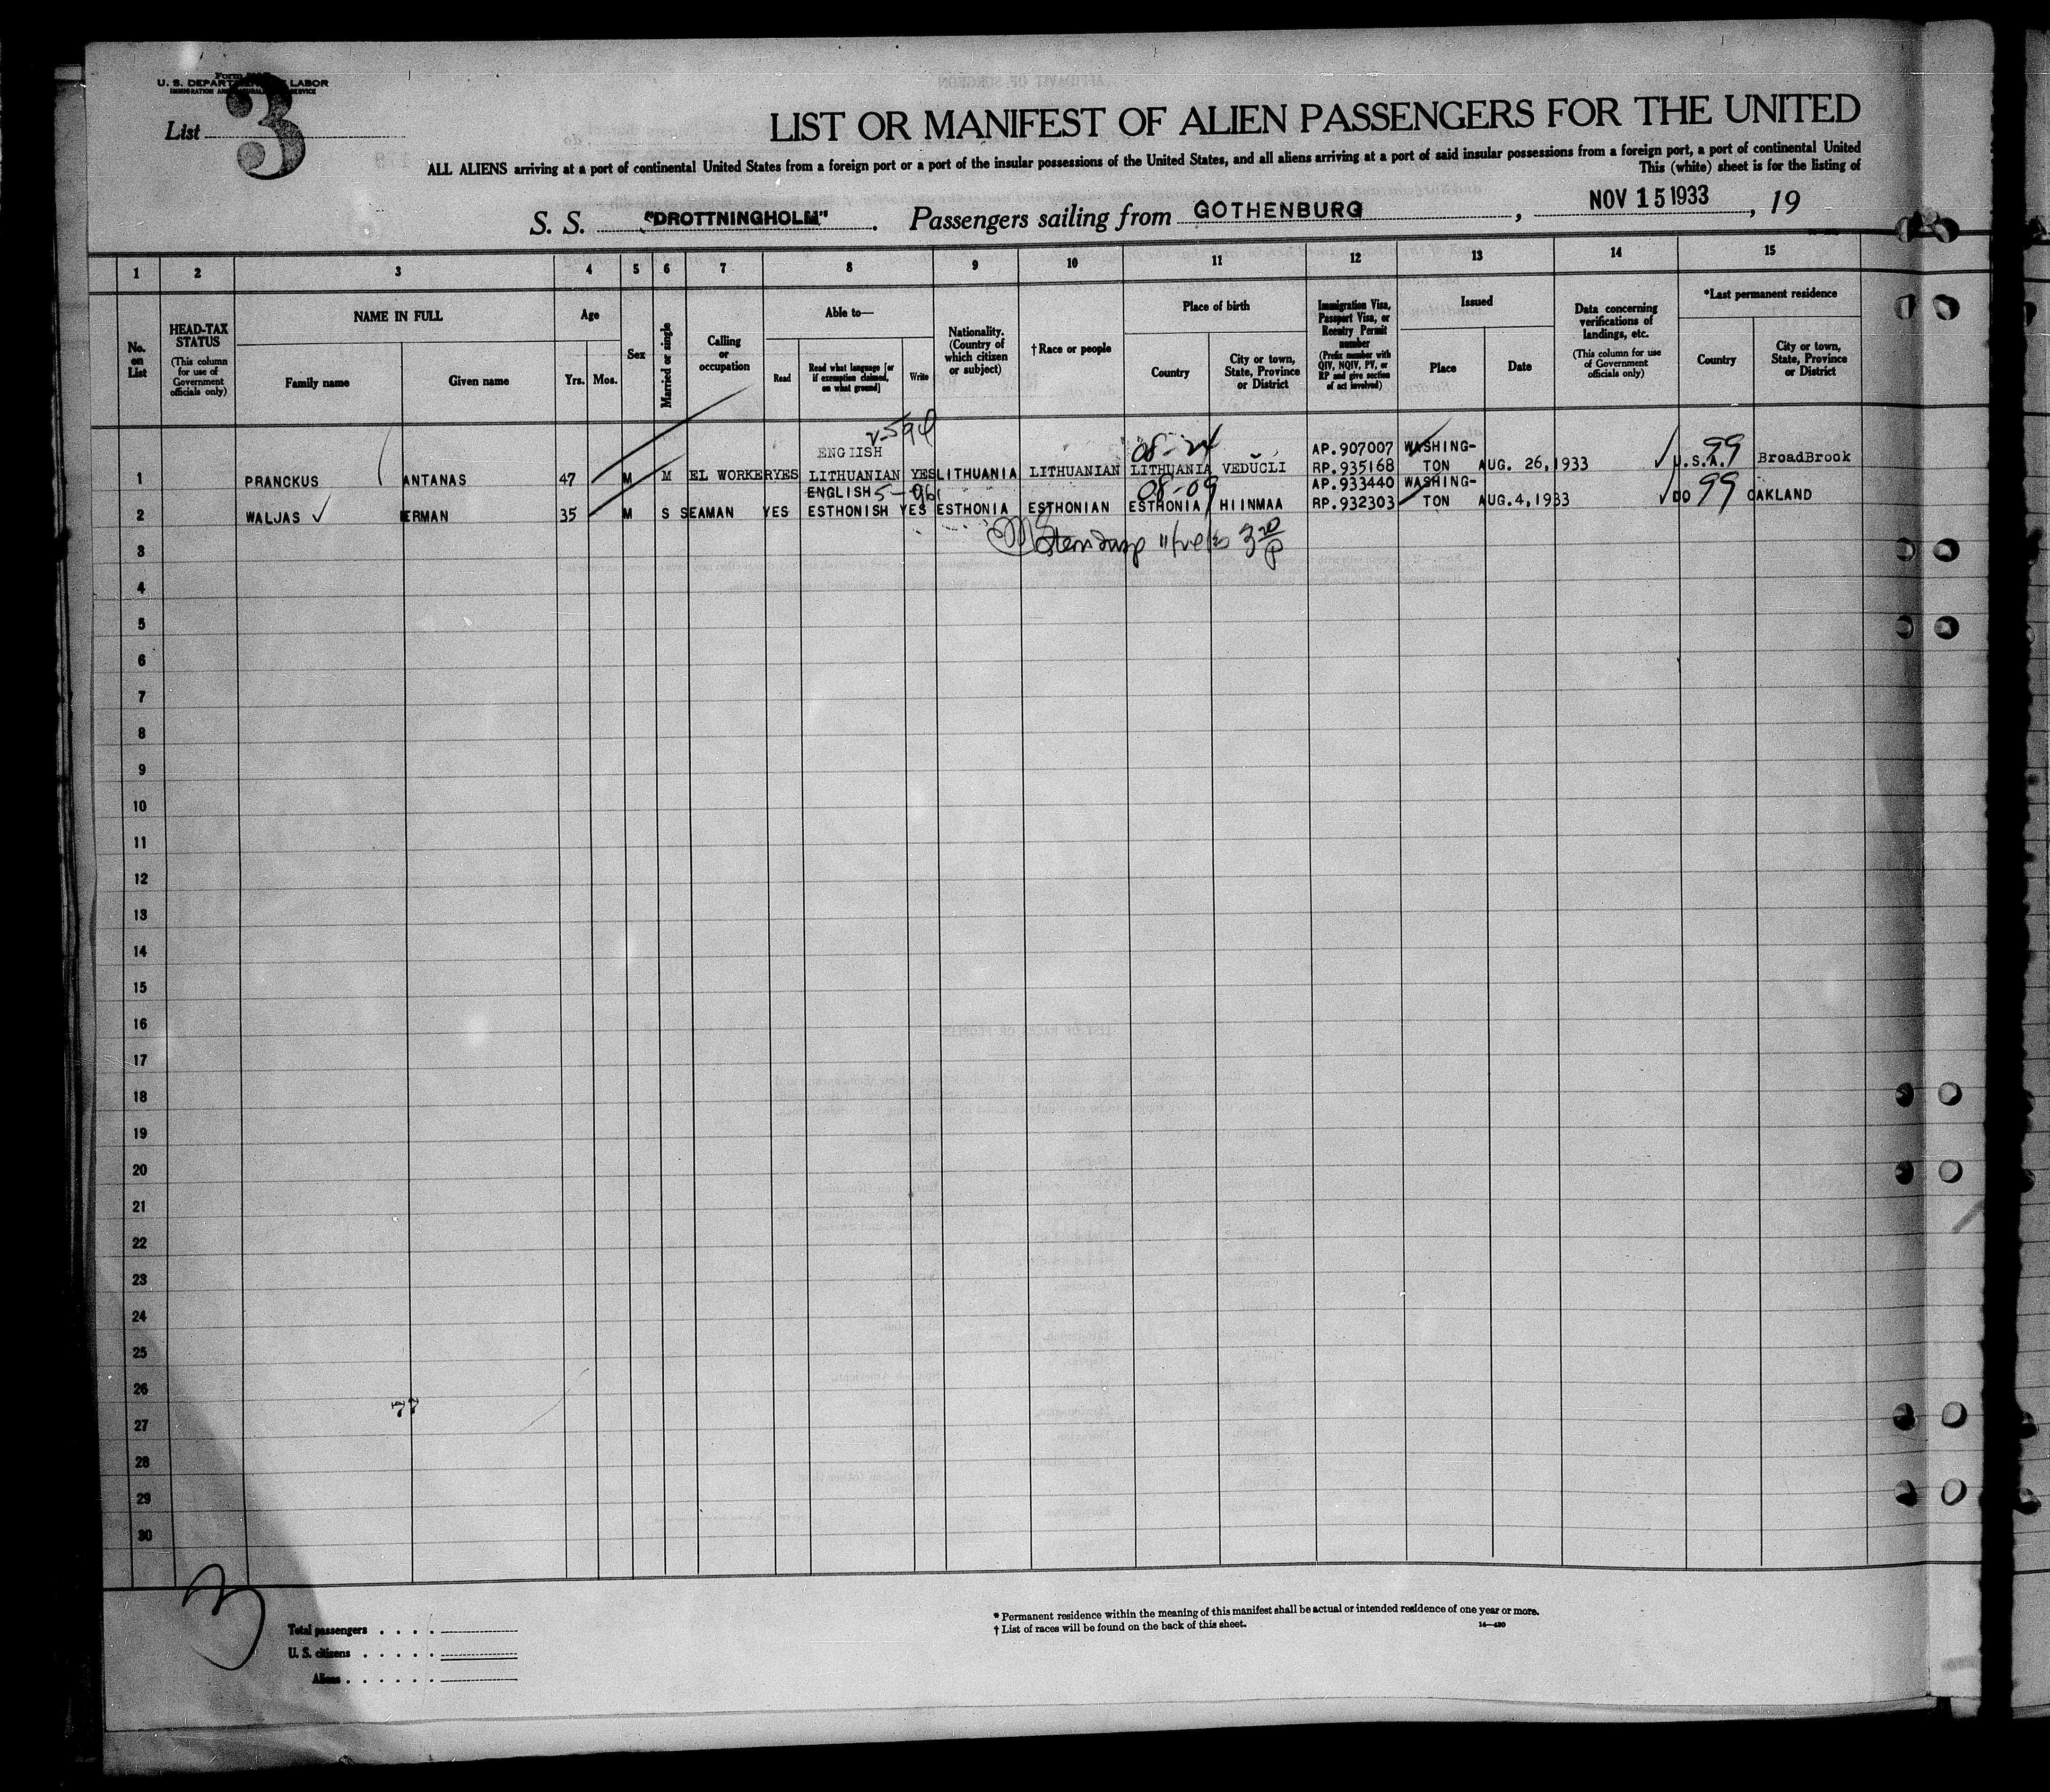 U. S. DEPARTMENT OF LABOR
List 3
LIST OR MANIFEST OF ALIEN PASSENGERS FOR THE UNITED
ALL ALIENS arriving at a port of continental United States from a foreign port or a port of the insular possessions of the United States, and all aliens arriving at a port of said insular possessions from a foreign port, a port of continental United
This (white) sheet is for the listing of
S. S. "DROTTNINGHOLM". Passengers sailing from GOTHENBURG, NOV 15 1933, 19
1 2 3 4 5 6 7 8 9 10 11 12 13 14 15
No. on List
HEAD-TAX STATUS (This column for use of Government officials only)
NAME IN FULL
Family name
Given name
Age
Yrs. Mos.
Sex
Married or single
Calling or occupation
Able to—
Read
Read what language [or if exemption claimed, on what ground]
Write
Nationality. (Country of which citizen or subject)
† Race or people
Place of birth
Country
City or town, State, Province or District
Immigration Visa, Passport Visa, or Reentry Permit number (Prefix number with QIV, NQIV, PV, or RP and give section of act involved)
Issued
Place
Date
Data concerning verifications of landings, etc. (This column for use of Government officials only)
*Last permanent residence
Country
City or town, State, Province or District
ENGLISH 08-24 AP.907007 WASHING- 99
1 PRANCKUS ANTANAS 47 M M EL WORKER YES LITHUANIAN YES LITHUANIA LITHUANIAN LITHUANIA VEDŬCLI RP.935168 TON AUG. 26,1933 U.S.A. BroadBrook
ENGLISH 5-961 08-09 AP.933440 WASHING-
2 WALJAS ERMAN 35 M S SEAMAN YES ESTHONISH YES ESTHONIA ESTHONIAN ESTHONIA HIINMAA RP.932303 TON AUG.4,1933 DO 99 OAKLAND
3
4
5
6
7
8
9
10
11
12
13
14
15
16
17
18
19
20
21
22
23
24
25
26
77
27
28
29
30
3
Total passengers . . . .
U. S. citizens . . . . .
Aliens . . . . . .
* Permanent residence within the meaning of this manifest shall be actual or intended residence of one year or more.
† List of races will be found on the back of this sheet.
14—430